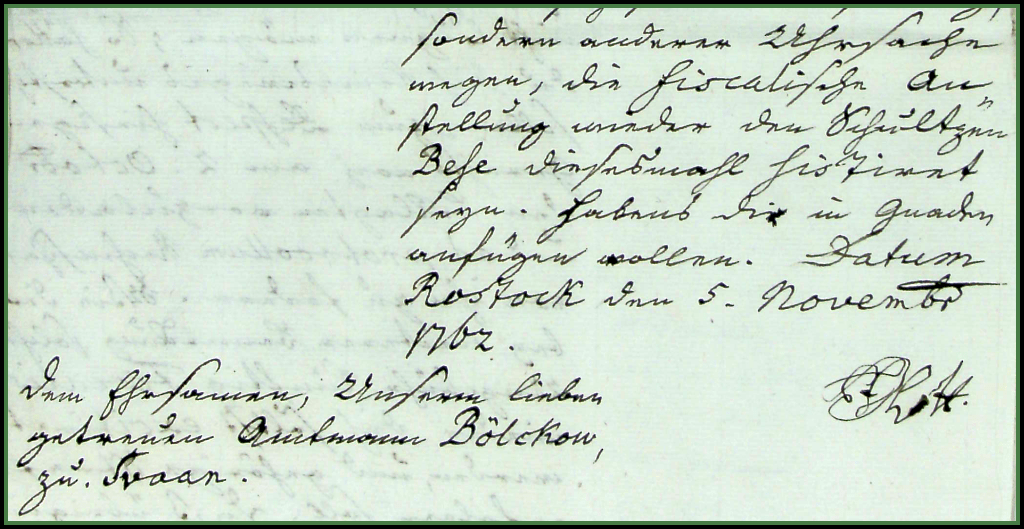 sondern anderer Uhrsache
wegen, die fiscalische An-
stellung wieder den Schultzen
Behe dieses mahl histiret
seyn. Habens dir in Gnaden
anfügen wollen. Datum
Rostock den 5. Novembr
1762.
Dem Ehrsamen, Unserm lieben
getreuen Amtmann Bölckow,
zu Svaan.